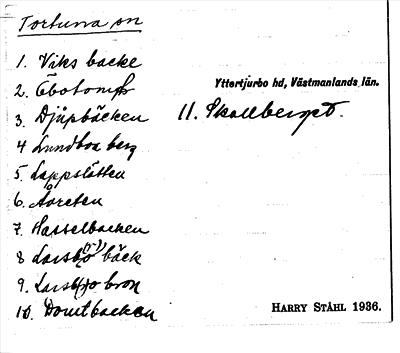 Tortuna sn
1. Viks backe
2. Öbotomt
Yttertjurbo hd, Västmanlands län.
3. Djüpbäcken
11. Skallberget.
4 Lundboa berg
5. Lappslätten
6. Åoreten
7. Hasselbacken
8 Larsbo bäck
9. Larsbo bron
10. Domtbacken
HARRY STÅHL 1936.